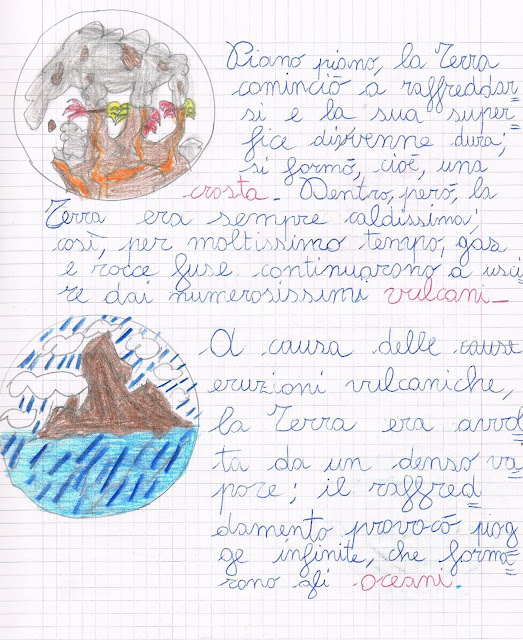 Piano piano, la Terra
cominciò a raffreddar=
si e la sua super=
fice divvenne dura;
si formò, cioè, una
crosta. Dentro, però, la
Terra era sempre caldissima;
così, per moltissimo tempo, gas
e rocce fuse continuarono a usci=
re dai numerosissimi vulcani.
A causa delle cause
eruzioni vulcaniche,
la Terra era avvol=
ta da un denso va=
pore; il raffred=
damento provocò piog=
ge infinite, che forma=
rono gli oceani.